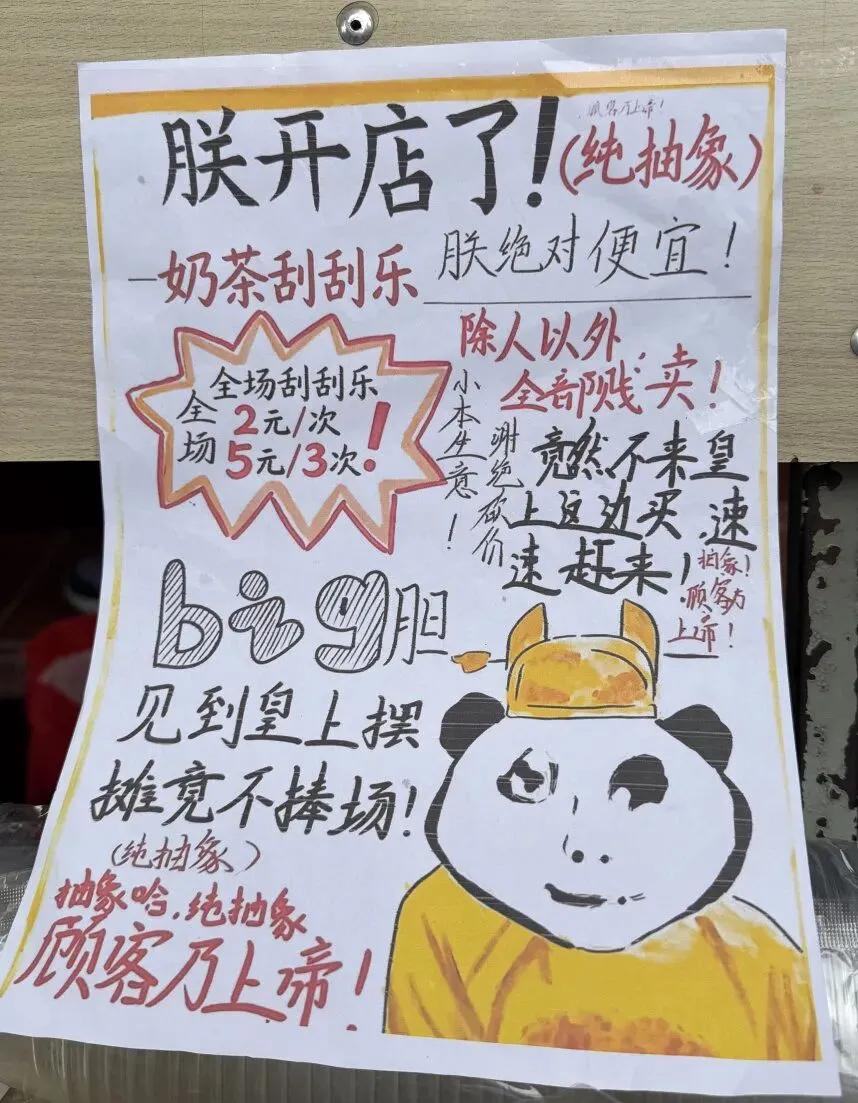 顾客乃上帝！
朕开店了！
(纯抽象)
—奶茶刮刮乐
朕绝对便宜！
全场刮刮乐
全场
2元/次
5元/3次！
除人以外，
全部贱卖！
小本生意！
谢绝砍价
竟然不来皇
上这边买，速
速赶来！
抽象！
顾客乃
上帝！
big胆
见到皇上摆
摊竟不捧场！
(纯抽象)
抽象哈，纯抽象
顾客乃上啼！